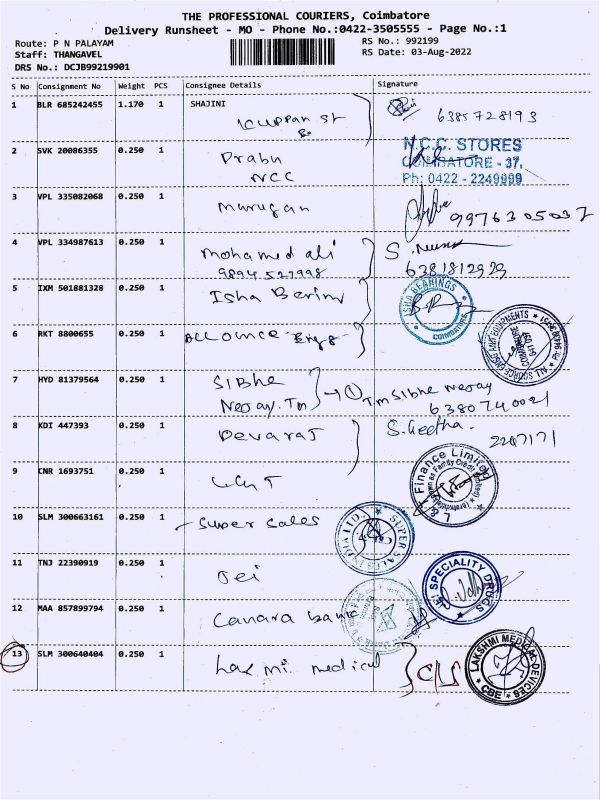 THE PROFESSIONAL COURIERS, Coimbatore
Delivery Runsheet - MO - Phone No.:0422-3505555 - Page No.:1
Route: P N PALAYAM RS No.: 992199
Staff: THANGAVEL RS Date: 03-Aug-2022
DRS No.: DCJB99219901
S No Consignment No Weight PCS Consignee Details Signature
1 BLR 685242455 1.170 1 SHAJINI
Kuppan St 6385728193
2 SVK 20086355 0.250 1 Prabu
NCC
N.C.C. STORES
COIMBATORE - 37.
Ph: 0422 - 2249999
3 VPL 335082068 0.250 1 Murugan 9976305037
4 VPL 334987613 0.250 1 Mohamed ali
9894527998 6381812929
5 IXM 501881328 0.250 1 Isha Bering
ISHA BEARINGS
COIMBATORE
6 RKT 8800655 0.250 1
7 HYD 81379564 0.250 1 Sibhe
Neray.Tm
T.m Sibhe Neray
6380740021
8 KDI 447393 0.250 1 Devaraj S.Geetha.
2207171
9 CNR 1693751 0.250 1 L&T
L & T Finance Limited
10 SLM 300663161 0.250 1 Super Sales
SUPER SALES INDIA LTD.
11 TNJ 22390919 0.250 1 Jei
JEI SPECIALITY DRUGS
12 MAA 857899794 0.250 1 Canara bank
13 SLM 300640404 0.250 1 Laxmi medical C/S
LAKSHMI MEDICAL DEVICES
CBE